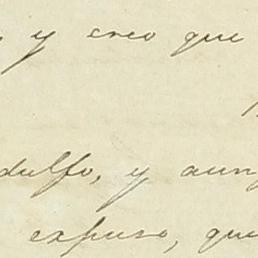 y creo que
dulfo, y aun
expuso, que